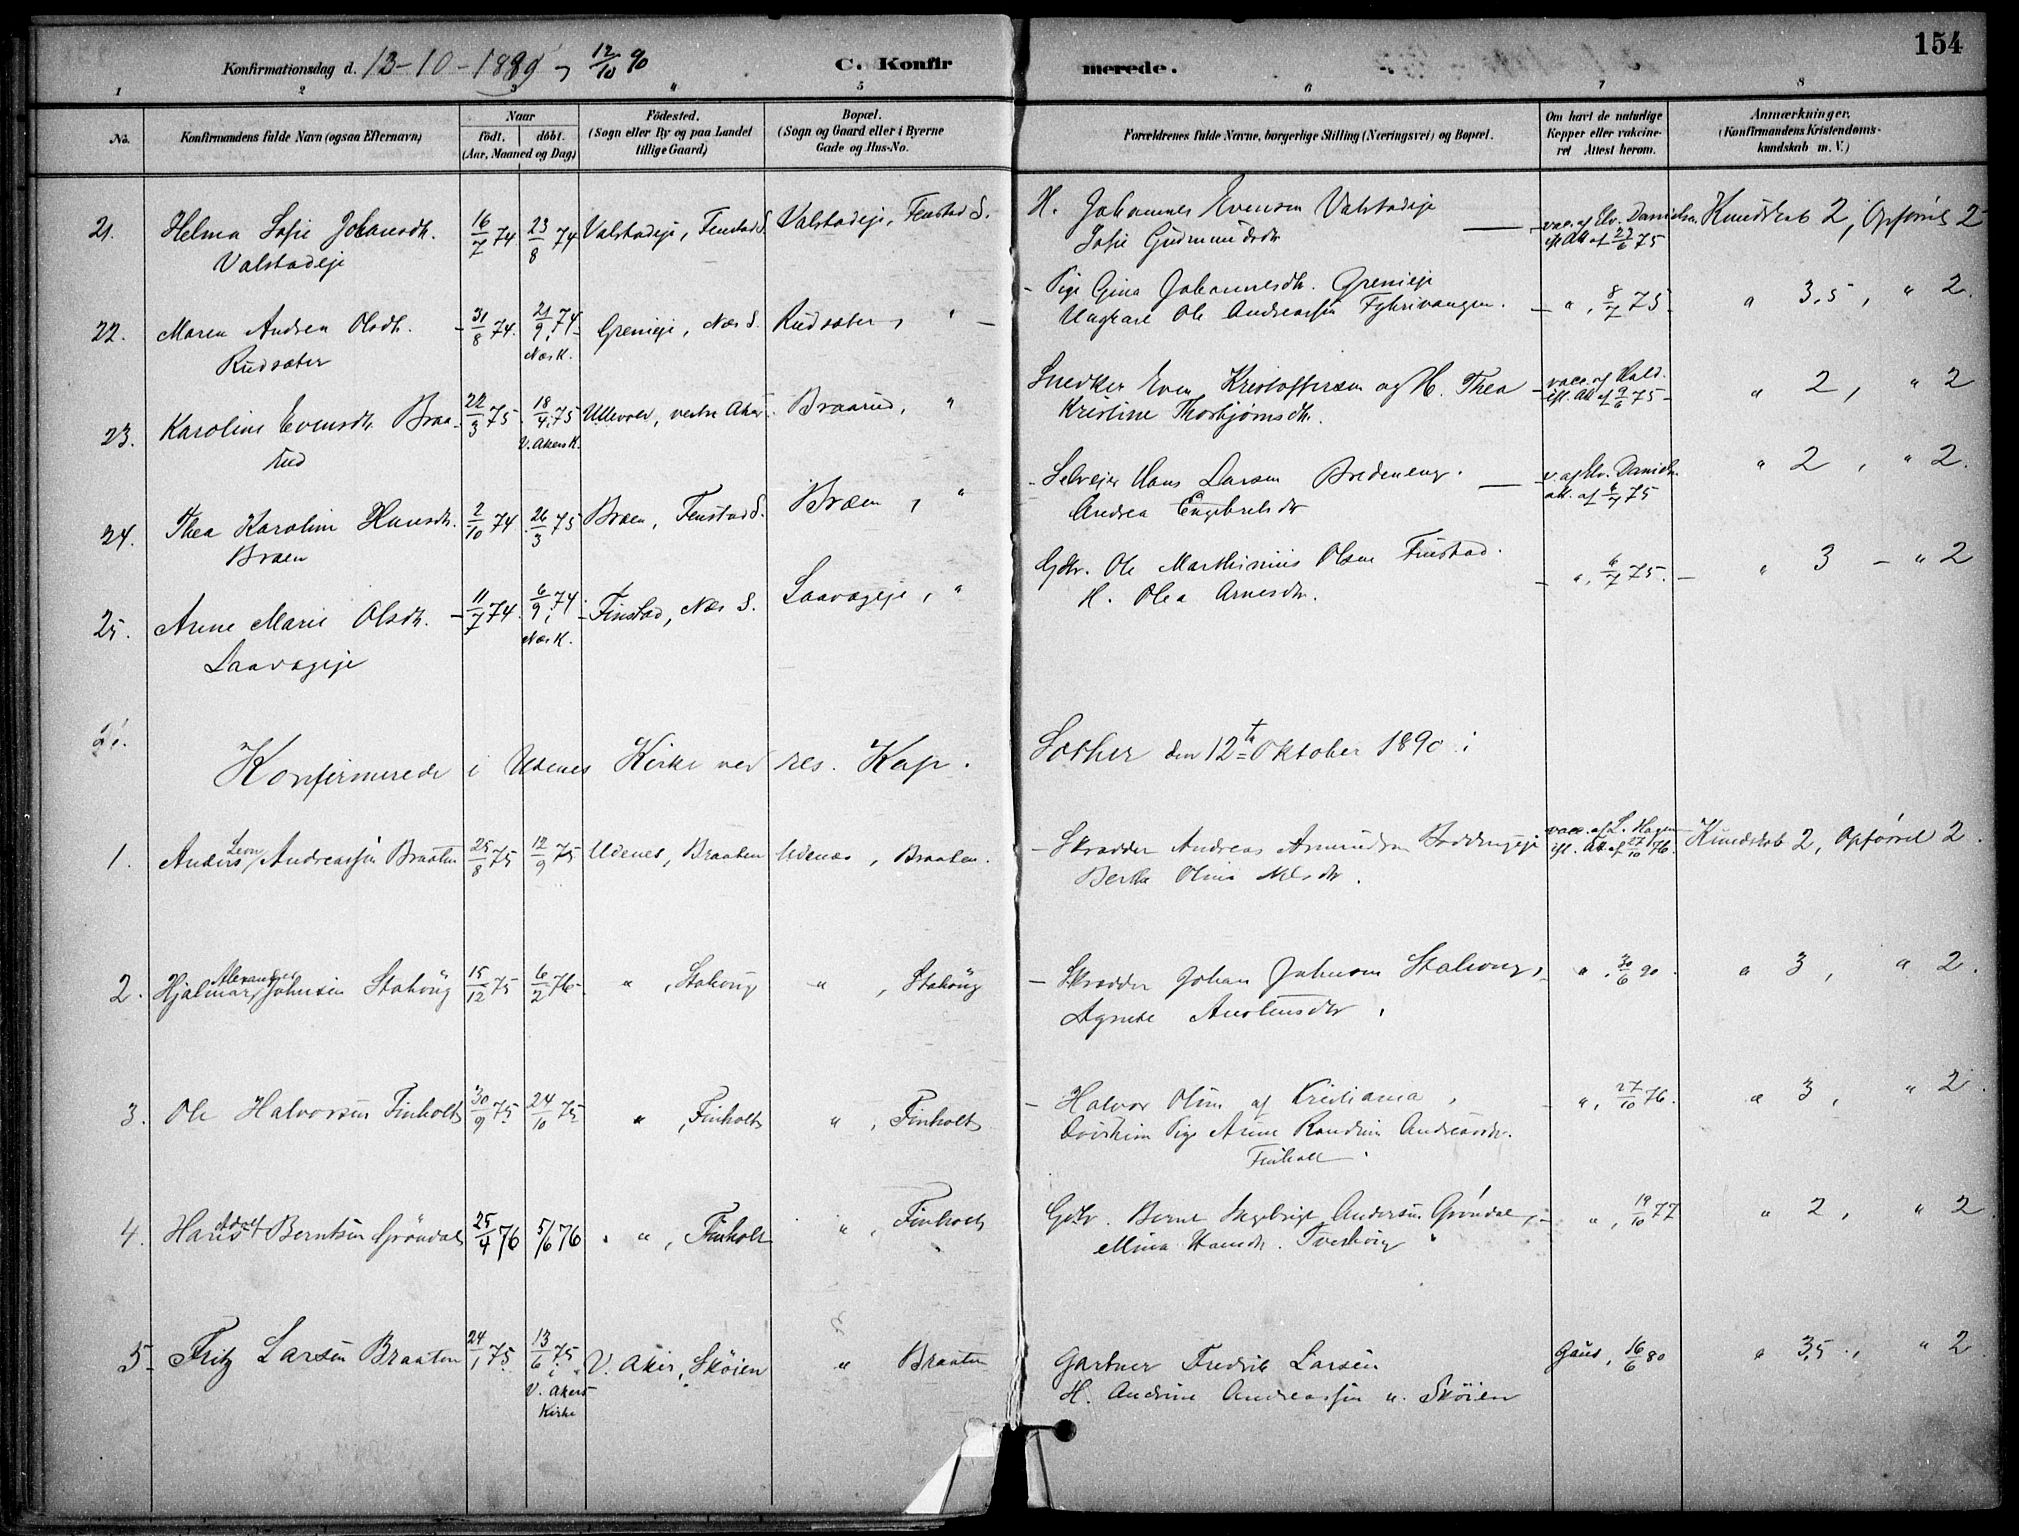 154
Konfirmationsdag d. 13-10-1889, 12/10 90 C. Konfirmerede.
1 2 3 4 5 6 7 8
No. Konfirmandens fulde Navn (ogsaa Efternavn) Naar født. døbt. (Aar, Maaned og Dag) Fødested. (Sogn eller By og paa Landet tillige Gaard) Bopæl. (Sogn og Gaard eller i Byerne Gade og Hus-No. Forældrenes fulde Navne, borgerlige Stilling (Næringsvei) og Bopæl. Om havt de naturlige Kopper eller vakcineret Attest herom. Anmærkninger. (Konfirmandens Kristendomskundskab m. V.)
21. Helma Sofie Johansdtr. 16/7 74 23/8 74 Valstadeje, Fenstad S. Valstadeje, Fenstad S. H. Johannes Evensen Valstadeje vac. af Elv. Danielsen Kundskab 2, Opførsel 2
Valstadeje Sofie Gudmundsdtr ifl. Att. af 22/6 75
22. Maren Andrea Olsdtr. 31/8 74. 21/9 74 Grenieje, Næs S. Rudsæter, " Pige Gina Johannesdtr. Grenieje " , 8/7 75 " 3,5, " 2.
Rudsæter Næs K. Ungkarl Ole Andreassen Fyhrivangen.
23. Karoline Evensdtr. Braa- 22/3 75. 18/4 75 Ullevold, vestre Aker. Braarud, " Snedker Even Kristoffersen og H. Thea vacc. af Hald. " 2, " 2
rud V. Akers K. Kristine Thorbjørnsdtr. ifl. Att. af 9/6 75
24. Thea Karoline Hansdtr. 2/10 74 26/3 75 Braen, Fenstad S. Bræen, " Selvejer Hans Larsen Bredeneng. v. af Elv. Daniels. " 2, " 2.
Braen Andrea Engebretsdtr att. af 6/7 75
25. Anne Marie Olsdtr. 11/7 74. 6/9 74 Finstad, Næs S. Laavageje, " Gdbr. Ole Marthinius Olsen Finstad. " , 6/7 75. " 3 - " 2
Laavageje Næs K. H. Olea Arnesdtr.
Konfirmerede i Udenes Kirke ved res. Kap. Sother den 12te Oktober 1890:
1. Anders Leon Andreassen Braaten 25/8 75 12/9 75 Udenes, Braaten Udenæs, Braaten. Skrædder Andreas Amundsen vacc. af L. Hagen Kundskab 2, Opførsel 2.
Berthe Oline Nilsdtr. ifl. Att. af 27/10 76.
2. Hjalmar Alexander Johnsen Stahøug 15/12 75 6/2 76 " , Stahoug " , Stahoug Skrædder Johan Johnsen Stahoug, " , 30/6 90. " 3, " 2.
Agnethe
3. Ole Halvorsen Finholt 30/9 75 24/10 75 " , Finholt " , Finholt Halvor Olsen af Kristiania, " , 27/10 76. " 3, " 2.
Pige Anne Randine Andreasdtr.
Finholt.
4. Hans Adolf Berntsen Grøndal 25/4 76 5/6 76 " , Finholt " , Finholt Gdbr. Bernt Ingebrigt Andersen Grøndal, " , 19/10 77 " 2, " 2
Mina Hansdtr.
5 Fritz Larsen Braaten 24/1 75. 13/6 75 V. Aker, Skøien " Braaten Gartner Fredrik Larsen Gaus, 16/6 80 " 3,5, " 2
i V. Akers H. Andrine Andreassen u. Skøien
Kirke